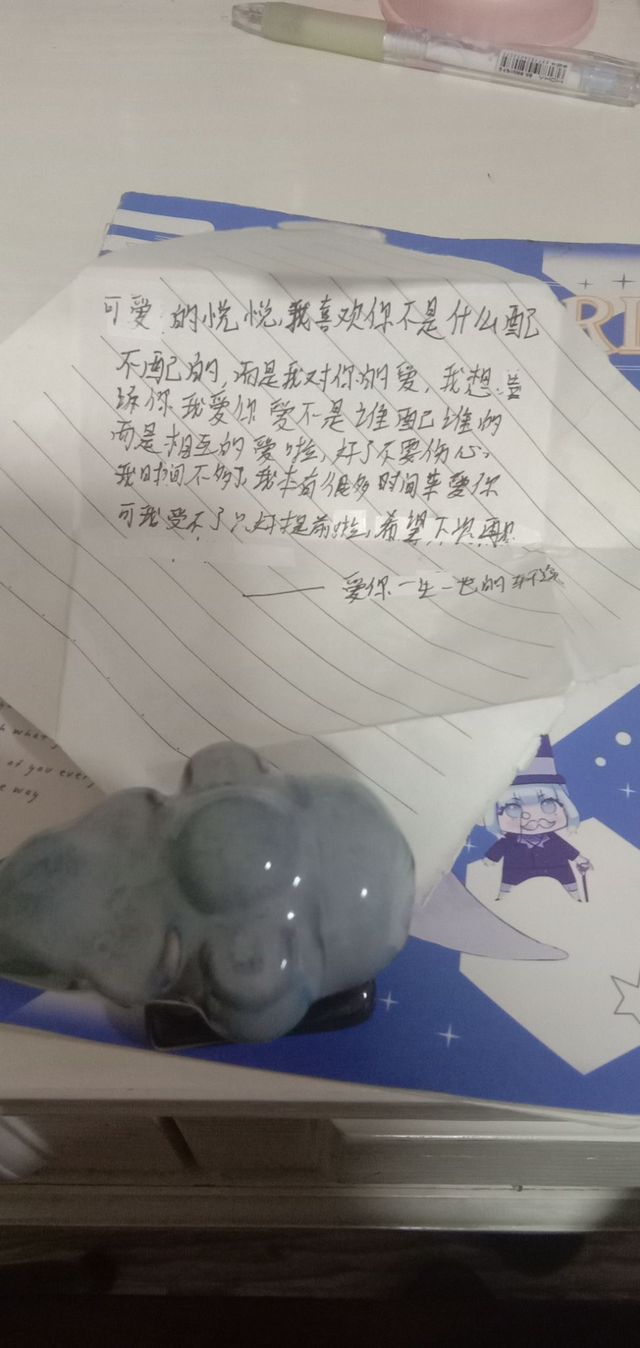 可爱的悦悦,我喜欢你不是什么配
不配的,而是我对你的爱,我想告
诉你我爱你 爱不是谁配谁的
而是相互的爱啦,好了不要伤心,
我时间不够了,我本有很多时间来爱你
可我受不了了,好提前啦,希望不
——爱你一生一世的
of you every
way